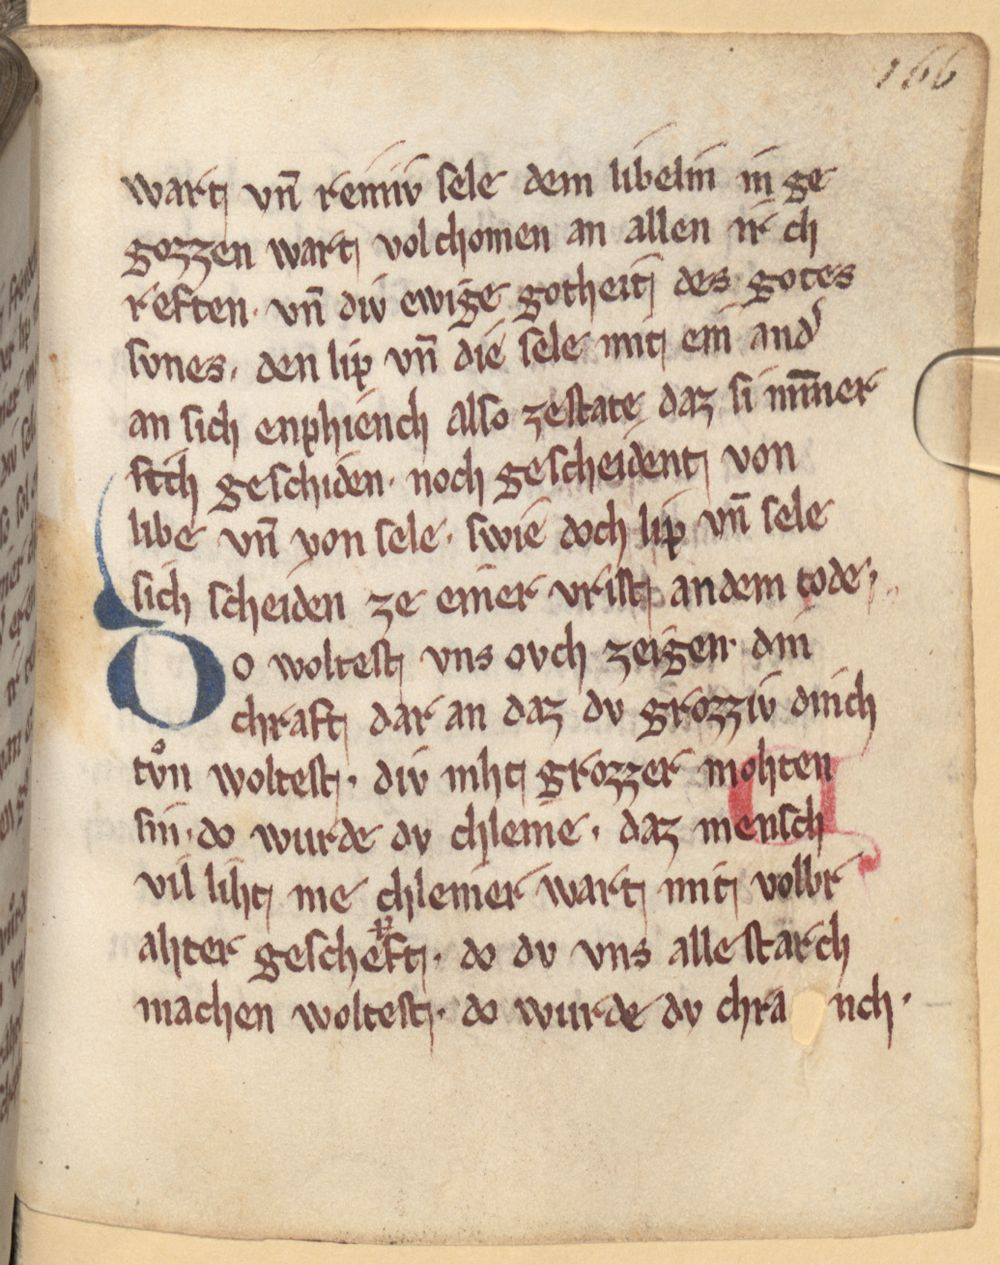 166
wart vn̄ reiniv sele dem libelin in ge
gozzen wart volchomen an allen ir ch
reften. vn̄ div ewige gotheit des gotes
svnes. den lip vn̄ die sele mit ein and͛
an sich enphiench also zestate daz si nim̄er
sich geschiden. noch gescheident von
libe vn̄ von sele. swie doch lip vn̄ sele
sich scheiden ze einer vrist an dem tode.
Do woltest vns ovch zeigen din
chraft dar an daz dv grozziv dinch
tvͦn woltest. div niht grozzer mohten
sin. do wurde dv chleine. daz mensch
vil liht nie chleiner wart mit volbr
ahter gescheft. do dv vns alle starch
machen woltest. do wurde dv chra nch.